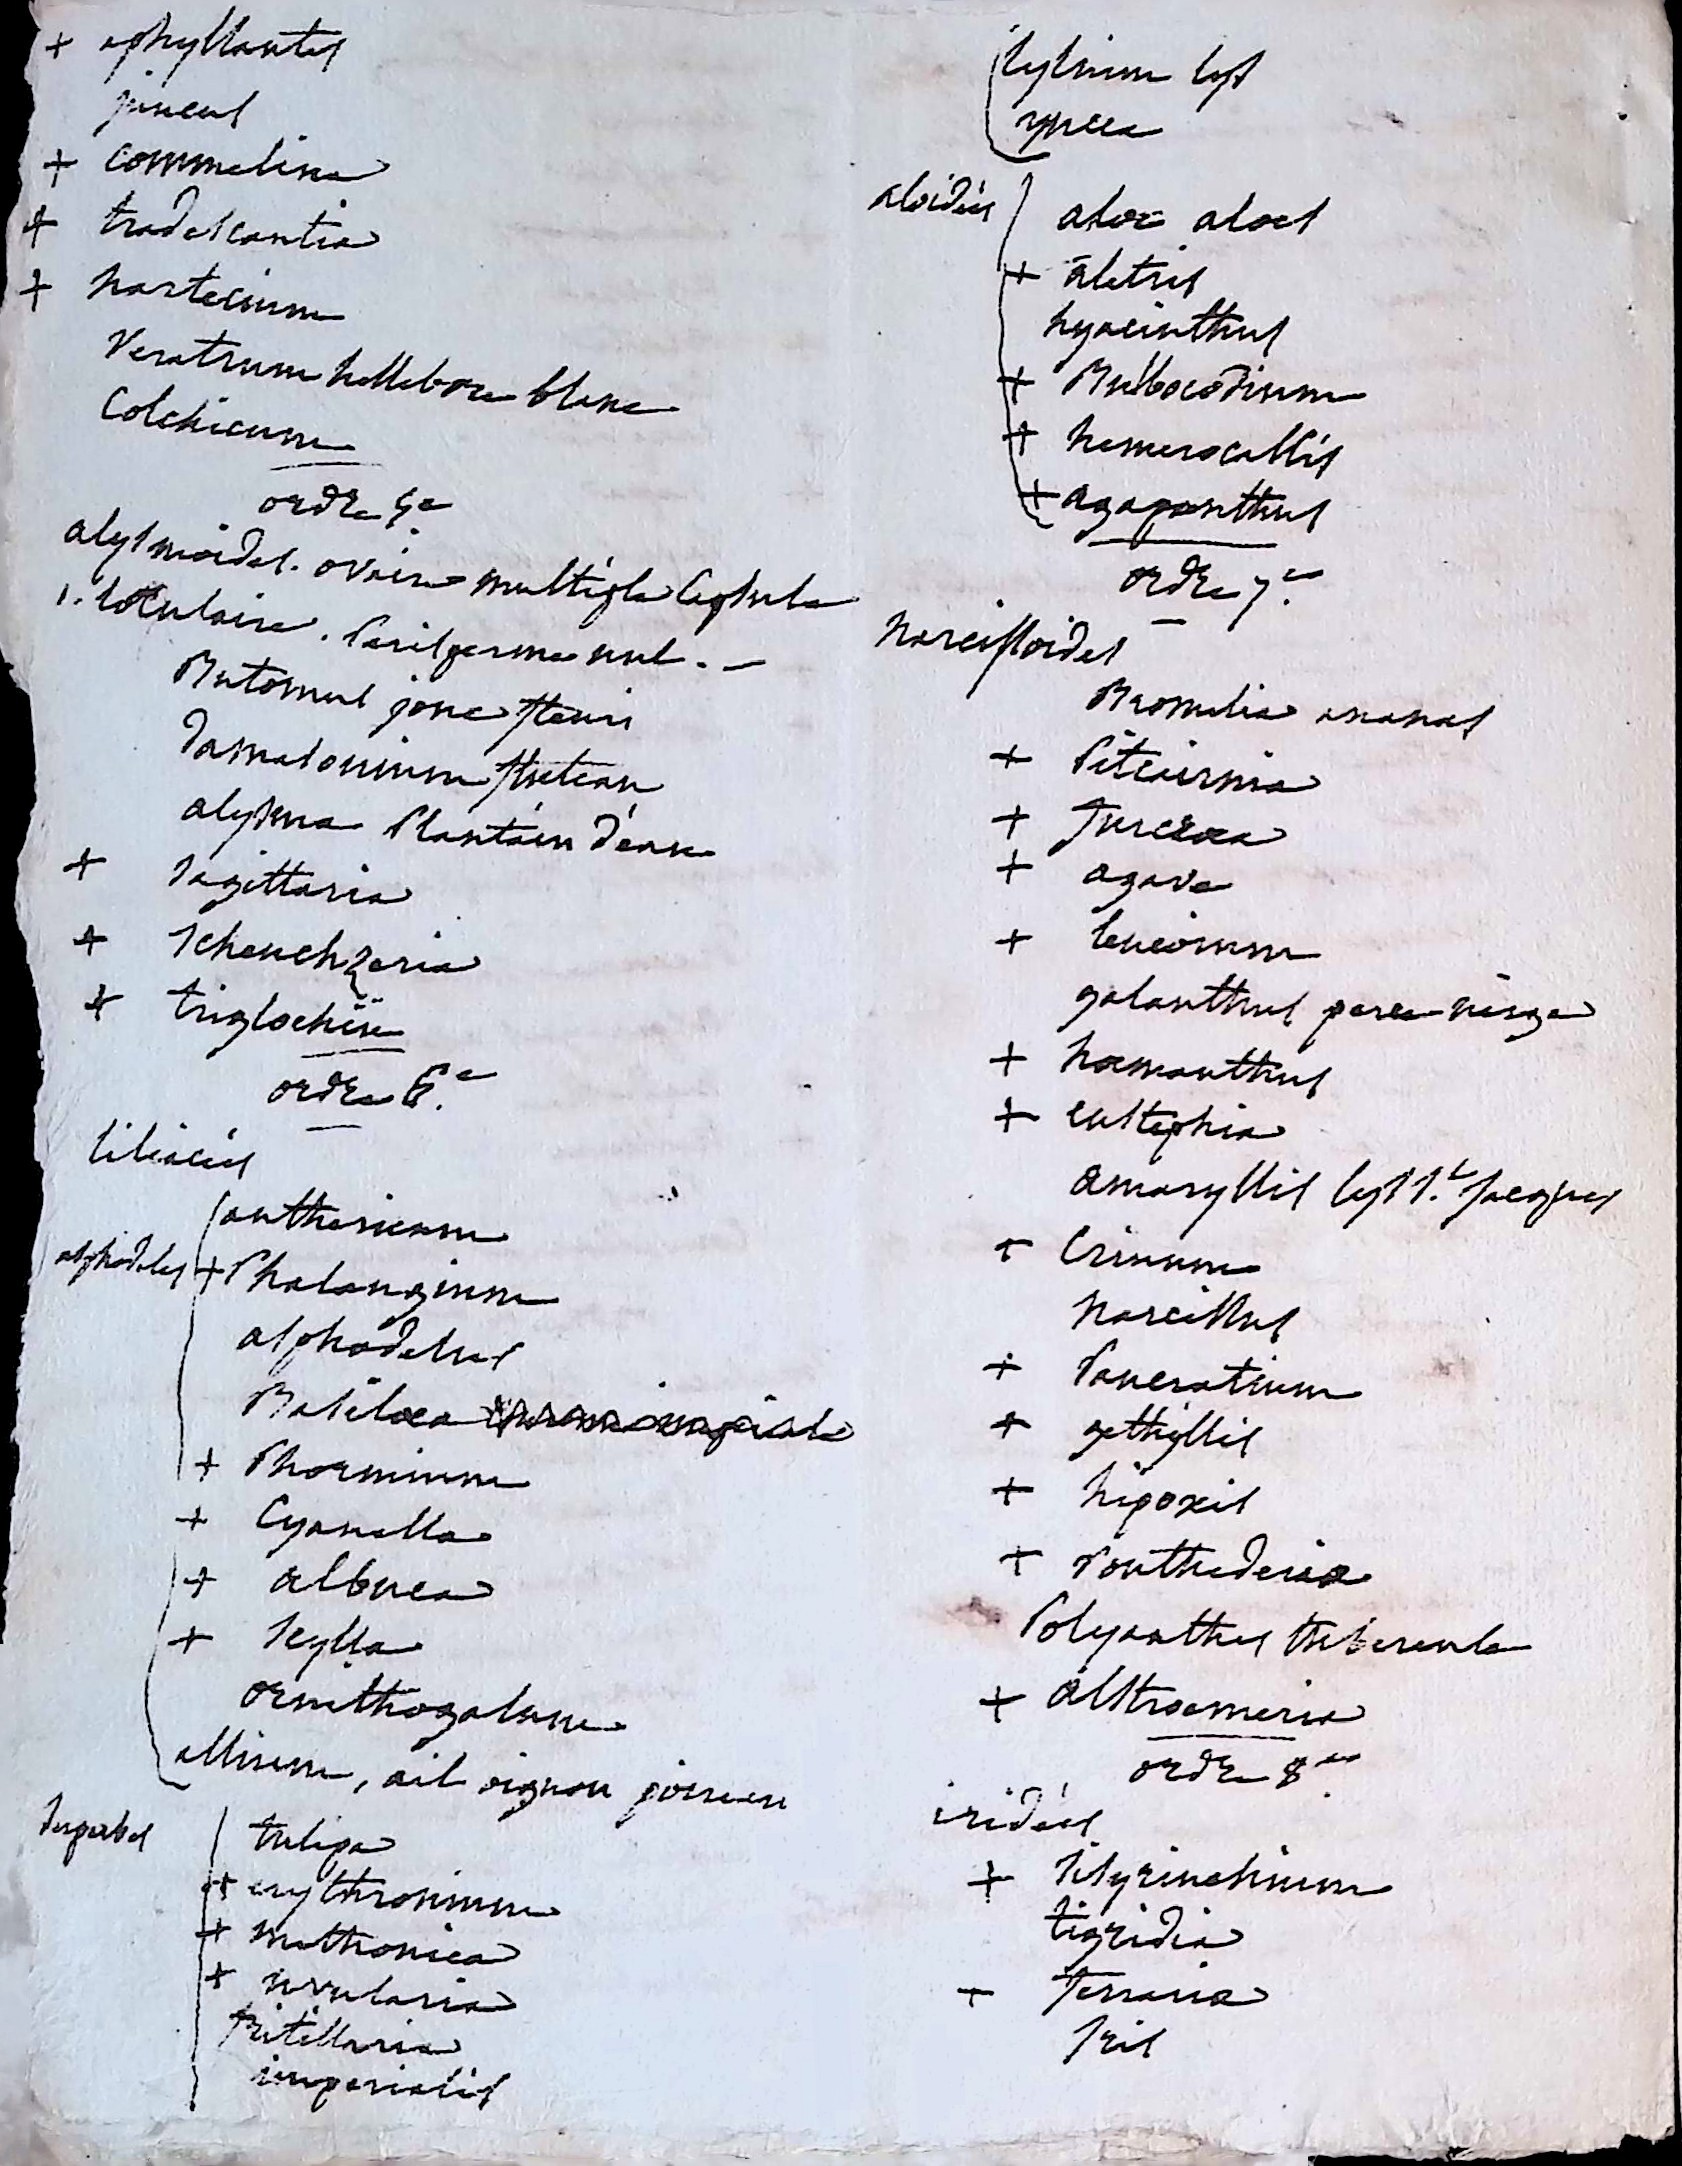 + aphyllantes
juncus
+ commelina
+ tradescantia
+ nartecium
Veratrum hellebore blanc
Colchicum
ordre 5e
alysmoides. ovaire multiple Capsule
1. loculaire. Perisperme nul. —
Butomus jonc fleuri
damasonium fluteau
alysma Plantain d'eau
+ sagittaria
+ scheuchzeria
+ triglochin
ordre 6.e
liliacées
anthericum
asphodeles + Phalangium
asphodelus
Basilaea
+ Phormium
+ Cyanella
+ albuca
+ scylla
ornithogalum
allium, ail oignon poireau
superbes tulipa
+ erythronium
+ methonica
+ uvularia
fritillaria
imperialis
lylium lys
yucca
aloidées aloe aloes
+ aletris
hyacinthus
+ Bulbocodium
+ hemerocallis
+ agapanthus
ordre 7.e
narcissoides
Bromelia ananas
+ Pitcairnia
+ furcroea
+ agave
+ leucoium
galanthus perce neige
+ hoemanthus
+ eustephia
amaryllis lys S.t Jacques
+ Crinum
narcissus
+ Pancratium
+ gethyllis
+ hipoxis
+ Ponthederia
Polyanthes tubereuse
+ alstroemeria
ordre 8.e
iridées
+ sisyrinchium
tigridia
+ ferraria
Iris